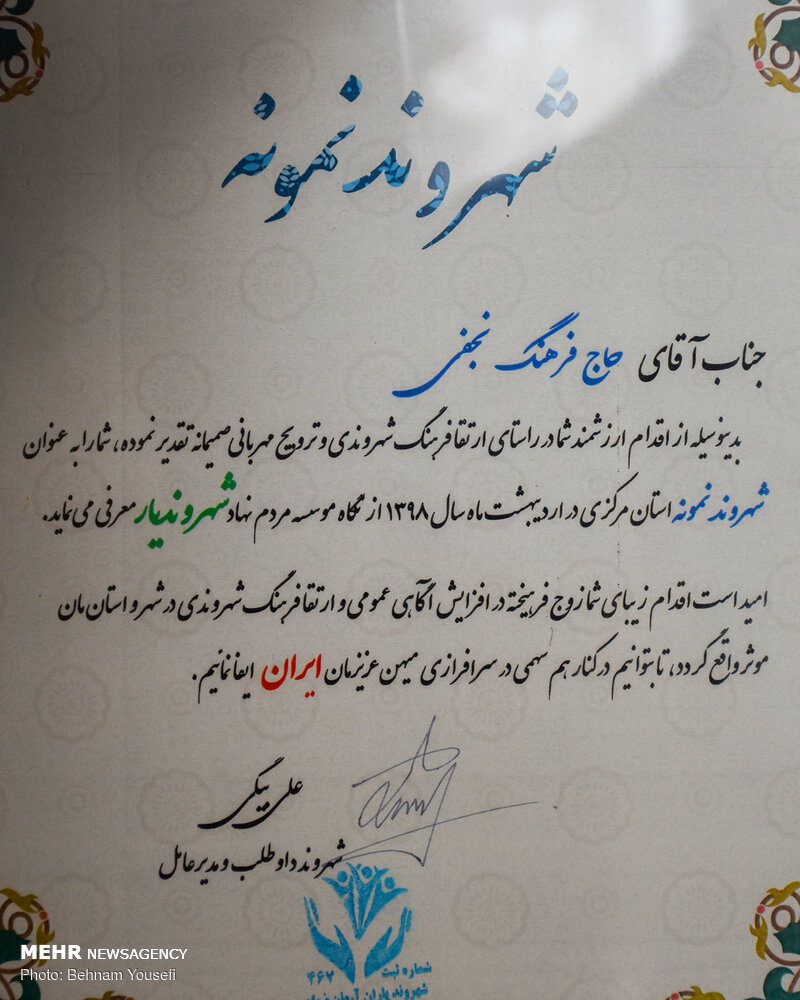 شهروند نمونه
جناب آقای حاج فرهنگ نجفی
بدینوسیله از اقدام ارزشمند شما در راستای ارتقا فرهنگ شهروندی و ترویج مهربانی صمیمانه تقدیر نموده، شما را به عنوان
شهروند نمونه استان مرکزی در اردیبهشت ماه سال ۱۳۹۸ از نگاه موسسه مردم نهاد شهروندیار معرفی می نماید.
امید است اقدام زیبای شما زوج فرهیخته در افزایش آگاهی عمومی و ارتقا فرهنگ شهروندی در شهر و استان مان
موثر واقع گردد، تا بتوانیم در کنار هم سهمی در سرافرازی میهن عزیزمان ایران ایفا نمائیم.
علی بیگی
شهروند داوطلب و مدیر عامل
شماره ثبت ۴۶۷
شهروند یاران آرمان
MEHR NEWSAGENCY
Photo: Behnam Yousefi